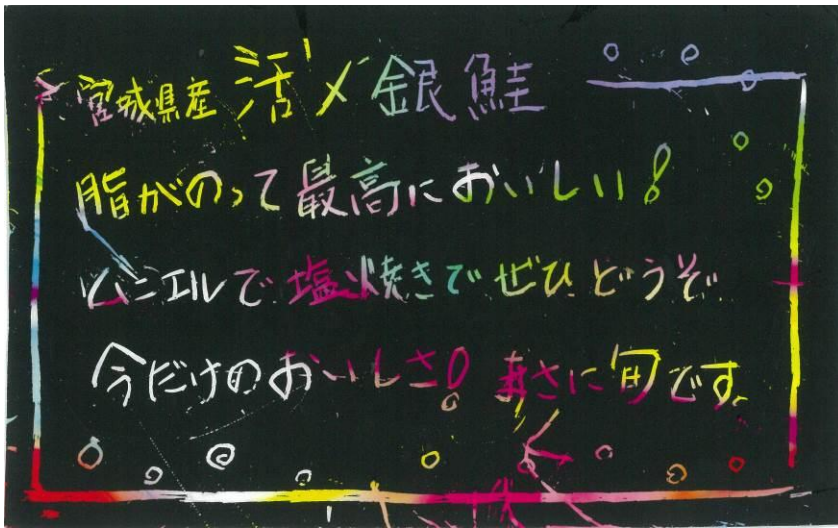 宮城県産 活〆銀鮭
脂がのって最高においしい!
ムニエルで塩焼きでぜひどうぞ
今だけのおいしさ! まさに旬です。